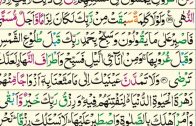 النُّهَىٰ وَلَوْلَا كَلِمَةٌ سَبَقَتْ مِن رَّبِّكَ لَكَانَ لِزَامًا وَأَجَلٌ مُّسَمًّى
فَاصْبِرْ عَلَىٰ مَا يَقُولُونَ وَسَبِّحْ بِحَمْدِ رَبِّكَ قَبْلَ طُلُوعِ الشَّمْسِ
وَقَبْلَ غُرُوبِهَا وَمِنْ آنَاءِ اللَّيْلِ فَسَبِّحْ وَأَطْرَافَ النَّهَارِ
تَرْضَىٰ وَلَا تَمُدَّنَّ عَيْنَيْكَ إِلَىٰ مَا مَتَّعْنَا بِهِ أَزْوَاجًا
زَهْرَةَ الْحَيَوٰةِ الدُّنْيَا لِنَفْتِنَهُمْ فِيهِ وَرِزْقُ رَبِّكَ خَيْرٌ وَأَبْقَىٰ
أَهْلَكَ بِالصَّلَوٰةِ وَاصْطَبِرْ عَلَيْهَا لَا نَسْأَلُكَ رِزْقًا